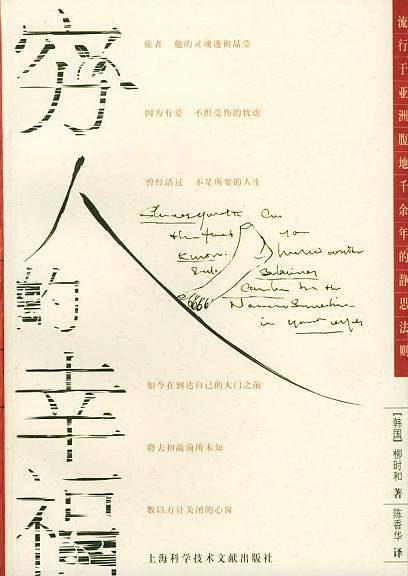 穷人的幸福
旅者 他的灵魂透彻晶莹
因为有爱 不惧受伤的忧虑
曾经活过 不是所要的人生
如今在到达自己的大门之前
将去扣敲前所未知
数以万计关闭的心窗
流行于亚洲腹地千余年的静思法则
[韩国] 柳时和 著
陈香华 译
in your eyes
上海科学技术文献出版社